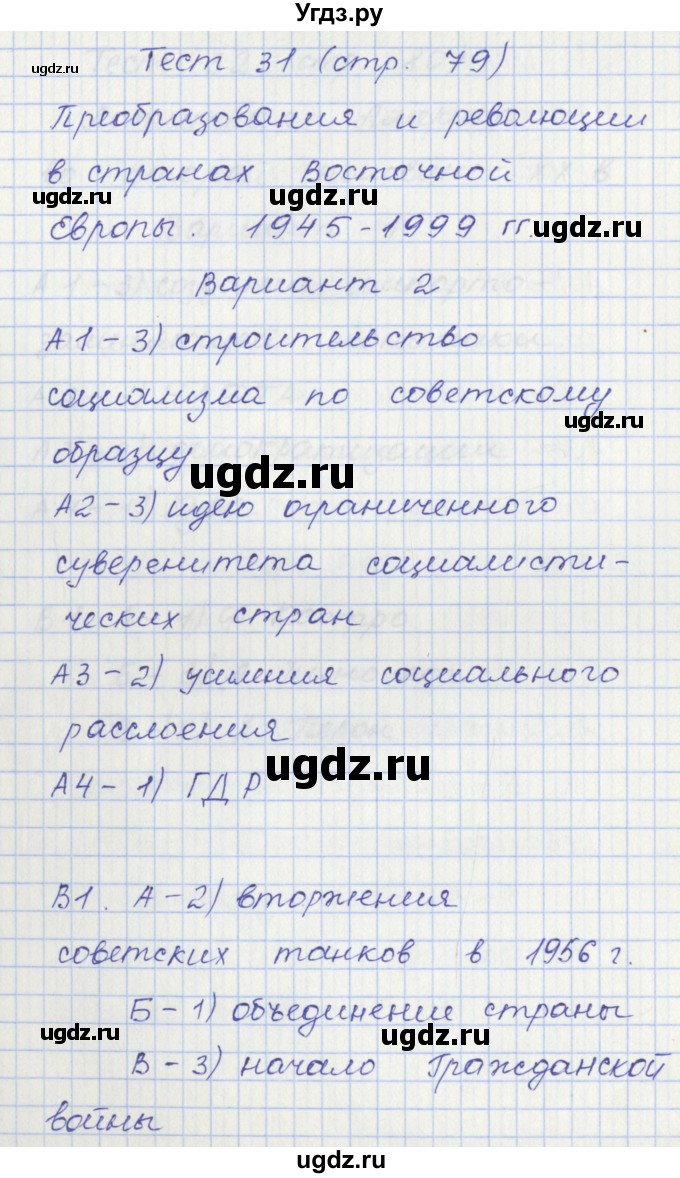 Угдз.ру
Тест 31 (стр. 79)
Преобразования и революции
в странах Восточной
Европы. 1945-1999 гг.
Вариант 2
А1-3) строительство
социализма по советскому
образцу
А2-3) идею ограниченного
суверенитета социалисти-
ческих стран
А3-2) усиления социального
расслоения
А4-1) ГДР
В1. А-2) вторжения
советских танков в 1956 г.
Б-1) объединение страны
В-3) начало Гражданской
войны
ugdz.ru
ugdz.ru
ugdz.ru
ugdz.ru
ugdz.ru
ugdz.ru
ugdz.ru
ugdz.ru
ugdz.ru
ugdz.ru
ugdz.ru
ugdz.ru